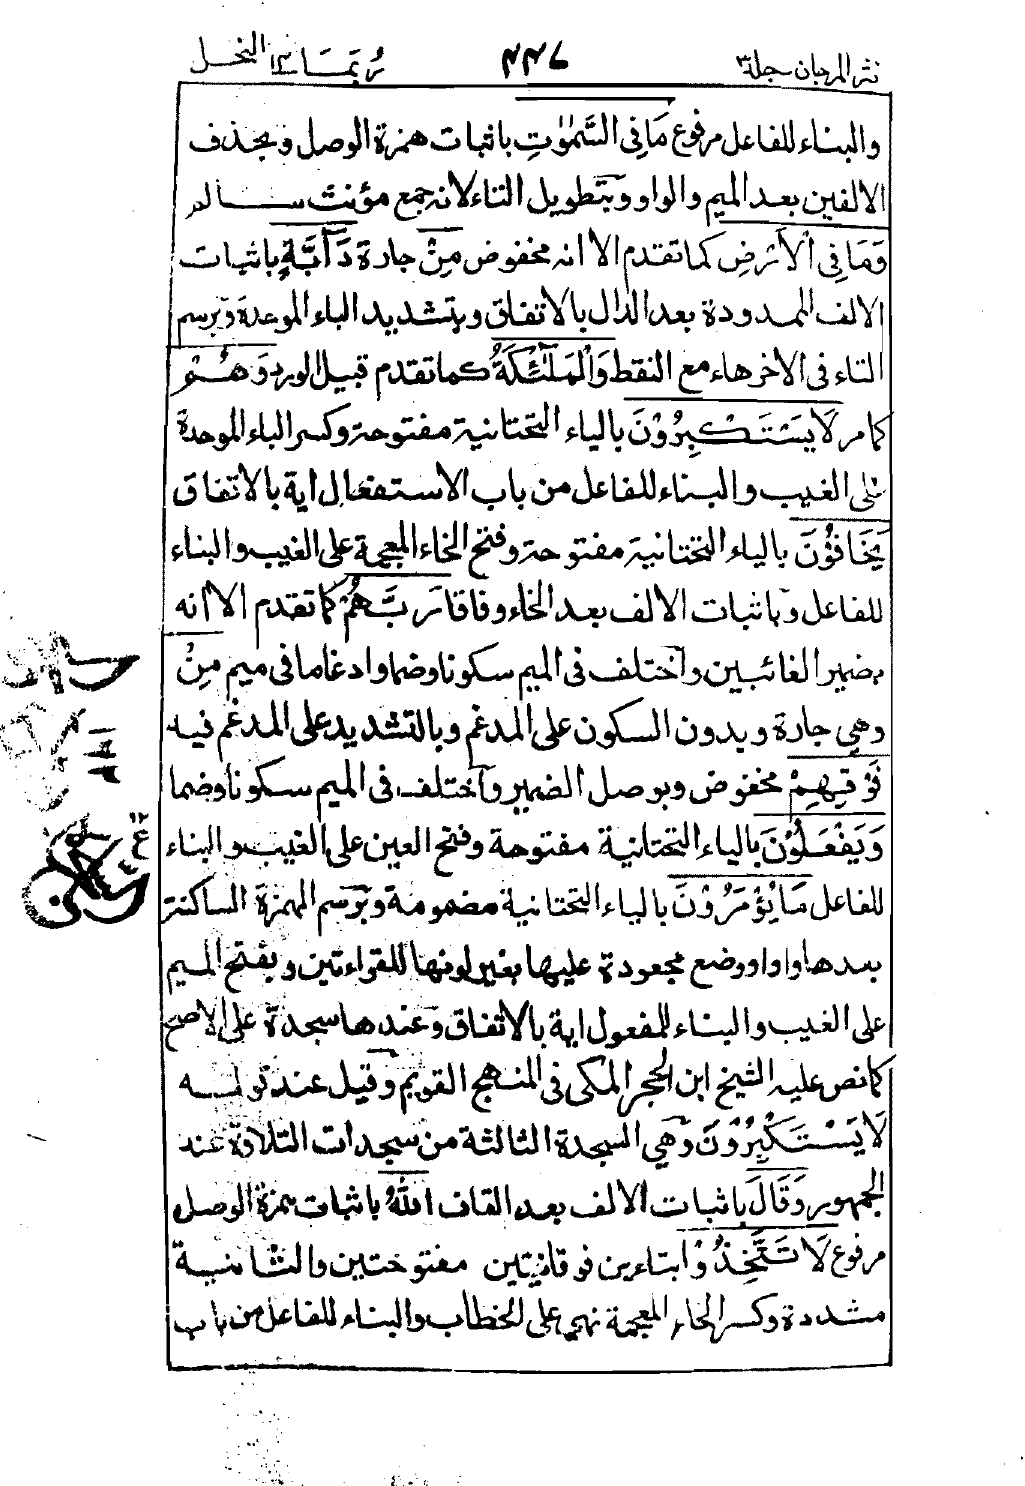 نثر المرجان جلد٣ ٤٤٧ رُبَمَا ١٤ النحل
والبناء للفاعل مرفوع مَا فِى السَّمٰوٰتِ باثبات همزة الوصل وبحذف
الالفين بعد الميم والواو وبتطويل التاء لانه جمع مؤنث سالم
وَمَا فِى الْأَرْضِ كما تقدم الا انه مخفوض مِنْ جارة دَآبَّةٍ باثبات
الالف الممدودة بعد الدال بالاتفاق وبتشديد الباء الموحدة وبرسم
التاء فى الاخر هاء مع النقط وَالْمَلٰٓئِكَةُ كما تقدم قبيل الورد وَهُمْ
كما مر لَا يَسْتَكْبِرُوْنَ بالياء التحتانية مفتوحة وكسر الباء الموحدة
على الغيب والبناء للفاعل من باب الاستفعال اية بالاتفاق
يَخَافُوْنَ بالياء التحتانية مفتوحة وفتح الخاء المعجمة على الغيب والبناء
للفاعل وباثبات الالف بعد الخاء وفاقا رَبَّهُمْ كما تقدم الا انه
بضمير الغائبين واختلف فى الميم سكونا وضما وادغاما فى ميم مِنْ
وهى جارة وبدون السكون على المدغم وبالتشديد على المدغم فيه
فَوْقِهِمْ مخفوض وبوصل الضمير واختلف فى الميم سكونا وضما
وَيَفْعَلُوْنَ بالياء التحتانية مفتوحة وفتح العين على الغيب والبناء
للفاعل مَا يُؤْمَرُوْنَ بالياء التحتانية مضمومة وبرسم الهمزة الساكنة
بعدها واوا ووضع مجعودة عليها بغير لونها للقراءتين وبفتح الميم
على الغيب والبناء للمفعول اية بالاتفاق وعندها سجدة على الاصح
كما نص عليه الشيخ ابن الحجر المكى فى المنهج القويم وقيل عند قوله
لَا يَسْتَكْبِرُوْنَ وهى السجدة الثالثة من سجدات التلاوة عند
الجمهور وَقَالَ باثبات الالف بعد القاف اللّٰهُ باثبات همزة الوصل
مرفوع لَا تَتَّخِذُوْا بتاءين فوقانيتين مفتوحتين والثانية
مشددة وكسر الخاء المعجمة نهى على الخطاب والبناء للفاعل من باب